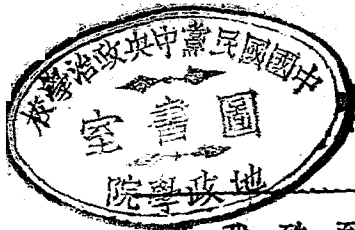 中國國民黨中央政治學校
圖書室
地政學院